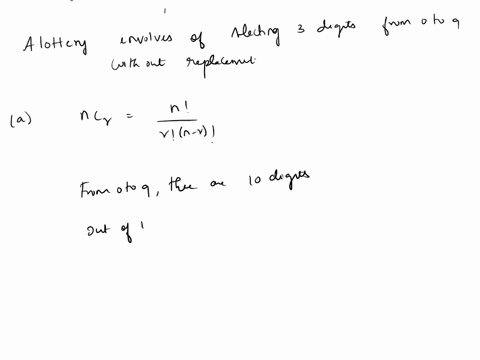 A lottery involves of selecting 3 degits from 0 to 9
with out replacement
(a) nCr = n! / r!(n-r)!
From 0 to 9, there are 10 degits
out of 1